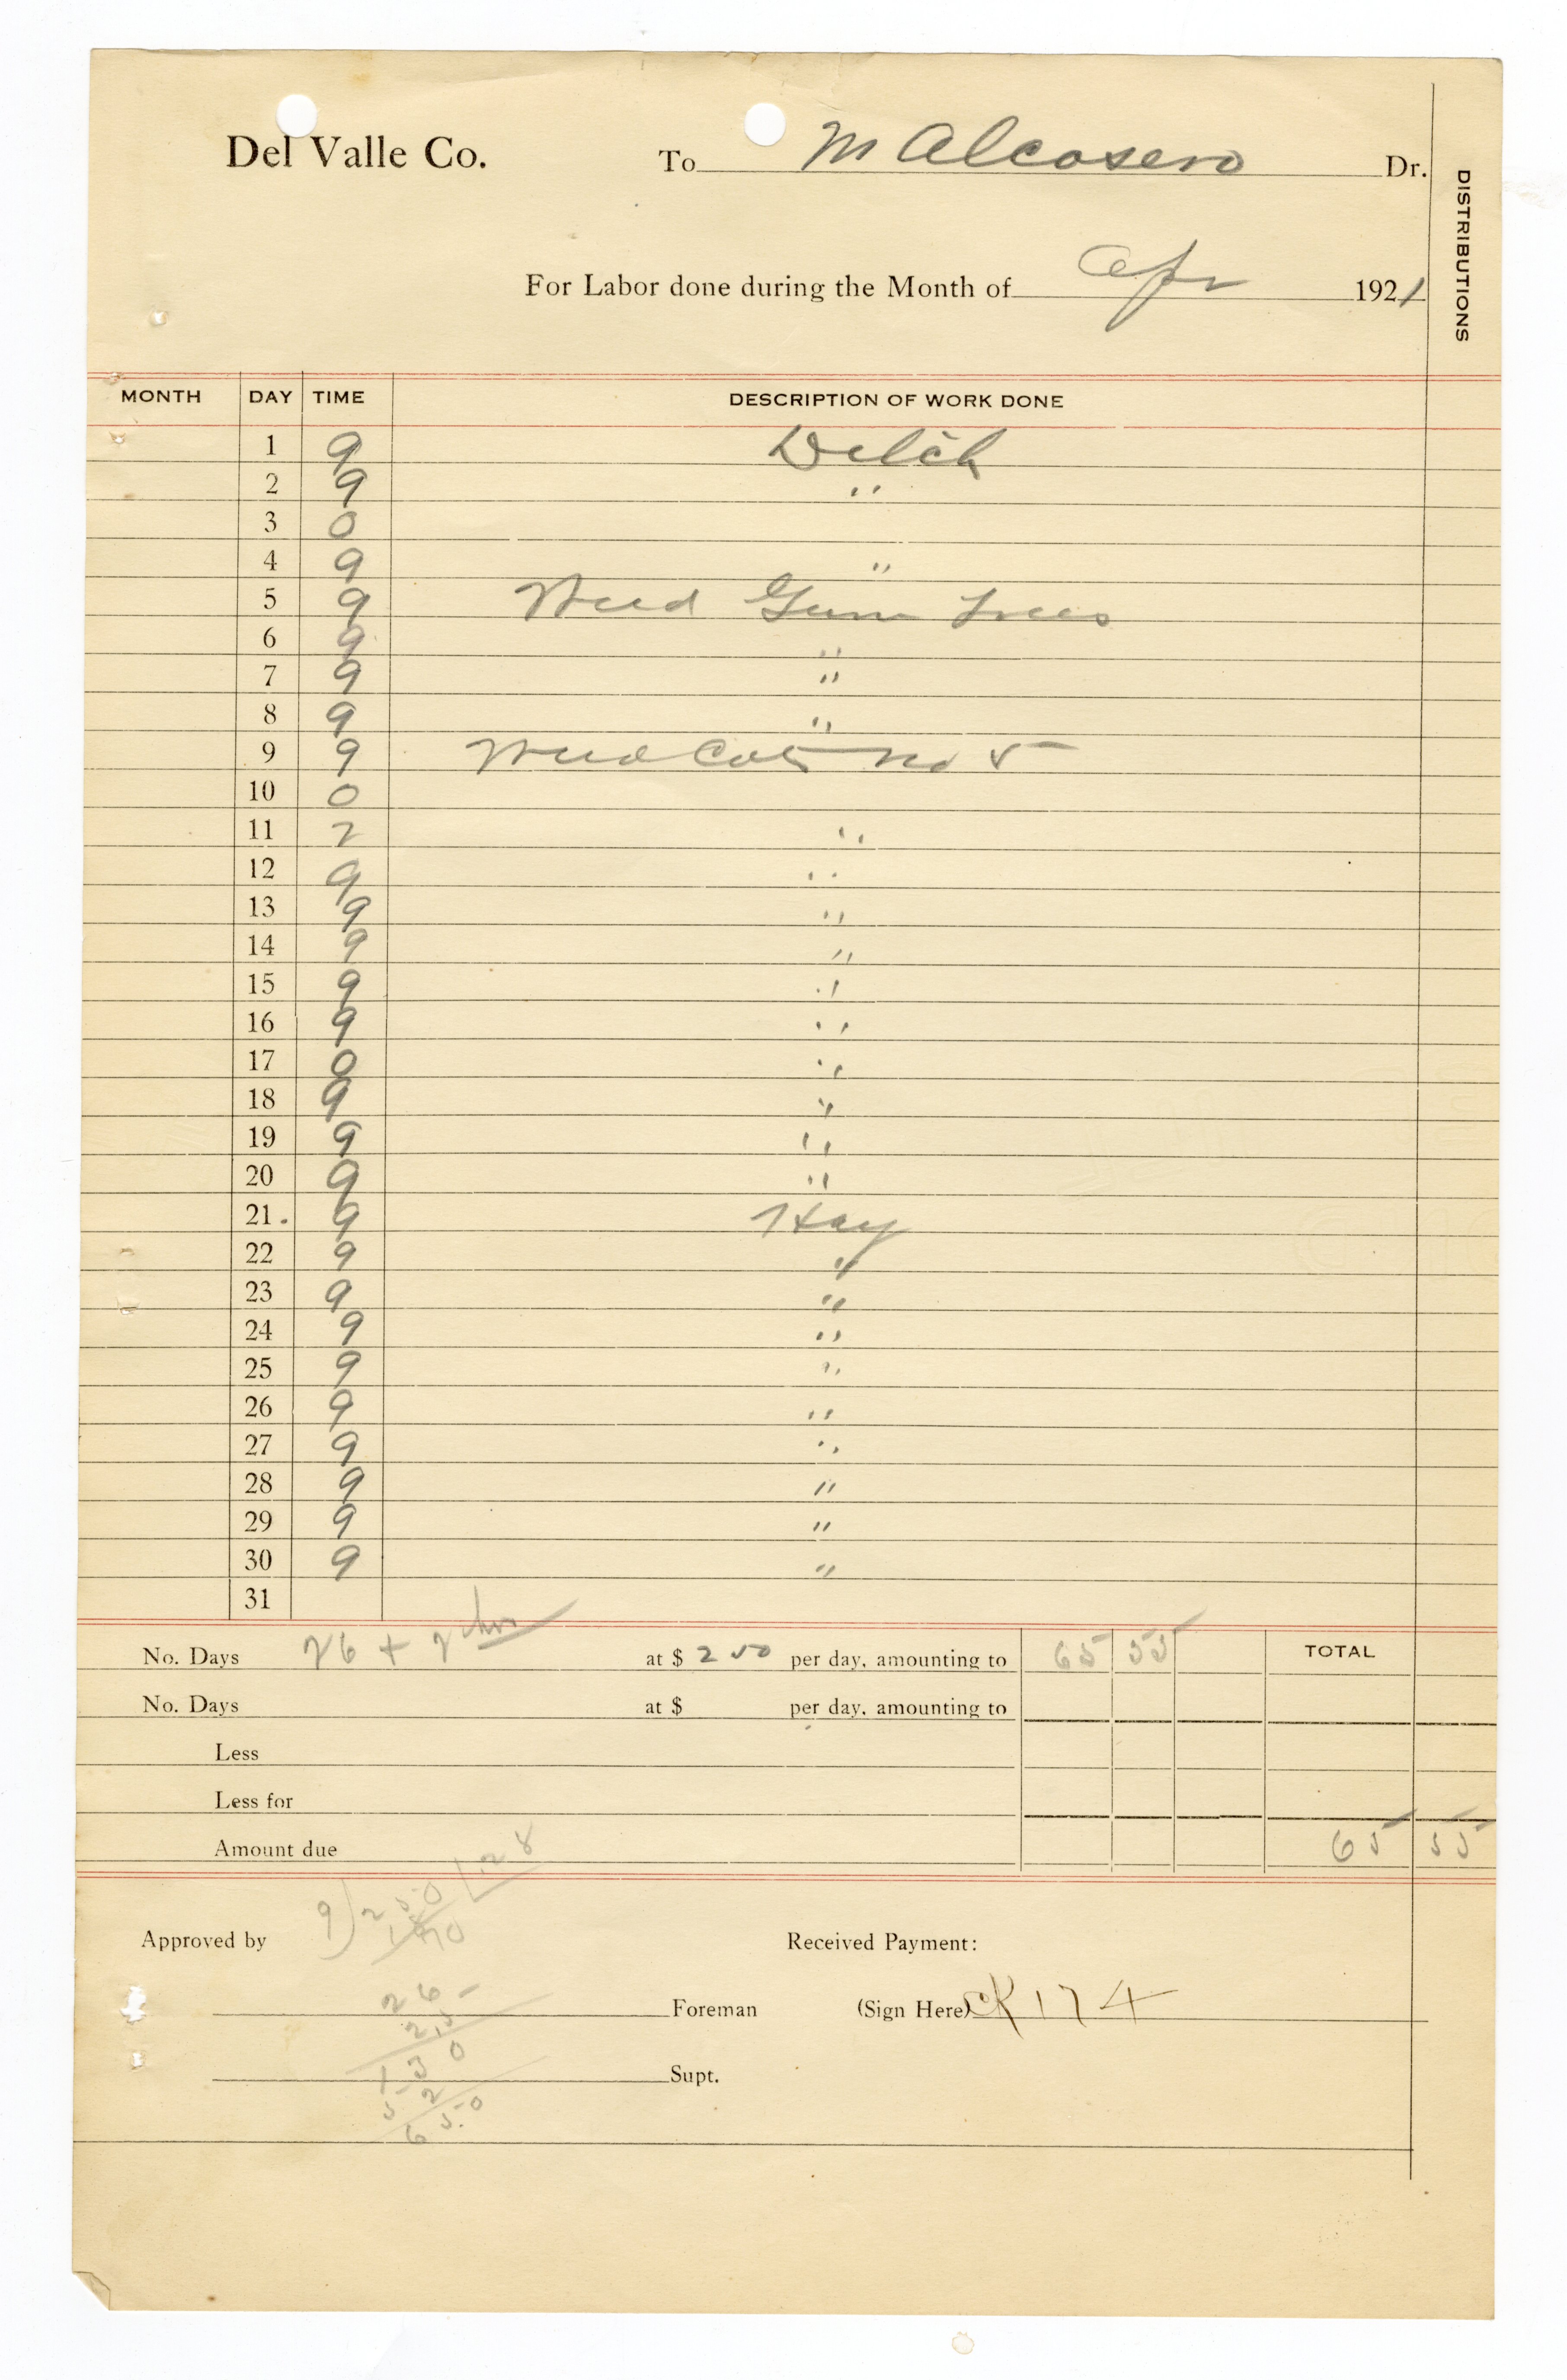 Del Valle Co. To M Alcosero Dr.
DISTRIBUTIONS
For Labor done during the Month of Apr 1921
MONTH DAY TIME DESCRIPTION OF WORK DONE
1 9 Ditch
2 9 "
3 0
4 9 "
5 9 Weed Gum Trees
6 9 "
7 9 "
8 9 "
9 9 Weed Cots No 5
10 0
11 2 "
12 9 "
13 9 "
14 9 "
15 9 "
16 9 "
17 0 "
18 9 "
19 9 "
20 9 "
21. 9 Hay
22 9 "
23 9 "
24 9 "
25 9 "
26 9 "
27 9 "
28 9 "
29 9 "
30 9 "
31
No. Days 26 + 2 hrs at $ 2 50 per day, amounting to 65 55 TOTAL
No. Days at $ per day, amounting to
Less
Less for
Amount due 65 55
9) 2 50 | .28
Approved by Received Payment:
26
Foreman (Sign Here) CK 174
2.5
130
Supt.
52
65.0